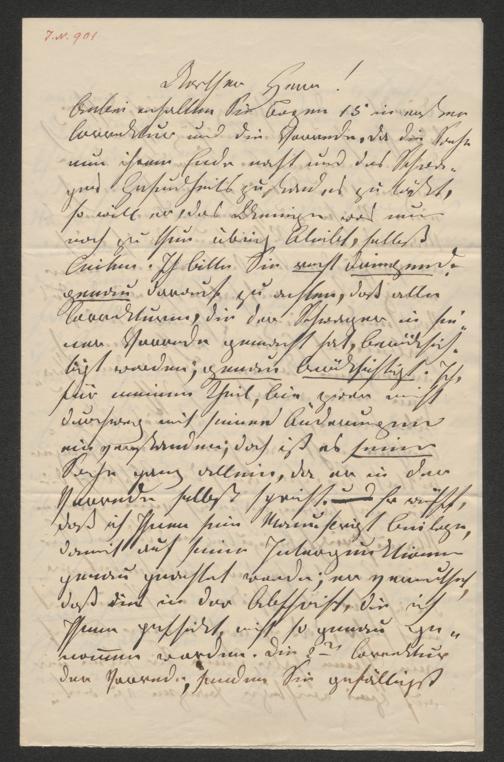 J. N. 901
Werther Herr!
Anbei erhalten Sie Bogen 15 in erster
Correktur und die Vorrede, da die Sache
nun ihrem Ende naht und des Schwa-
gers Gesundheits zustand es zuläßt,
so will er, das Wenige was nun
noch zu thun übrig bleibt, selbst
leiten. Ich bitte Sie recht dringend,
genau darauf zu achten, daß alle
Correkturen, die der Schwager in sei-
ner Vorrede gemacht hat, berücksich-
tigt werden, genau berücksichtigt. Ich,
für meinen Theil, bin zwar nicht
durchweg mit seinen Änderungen
einverstanden, doch ist es seine
Sache ganz allein, da er in der
Vorrede selbst spricht. Er wünscht,
daß ich Ihnen sein Manuscript beilege,
damit auf seine Interpunktionen
genau geachtet werde; er vermuthet,
daß die in der Abschrift, die ich
Ihnen geschickt, nicht so genau ge-
nommen worden. Die 2te Correktur
der Vorrede, senden Sie gefälligst